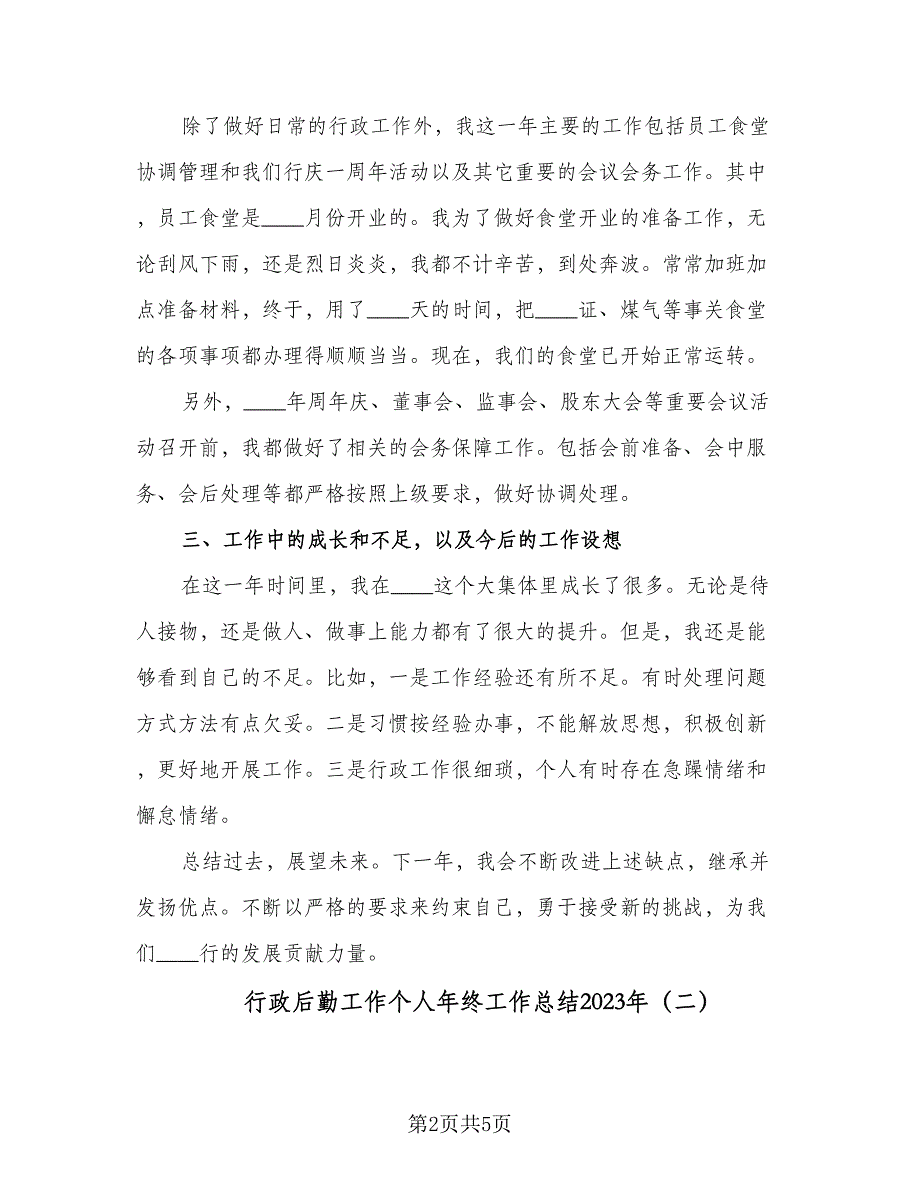 除了做好日常的行政工作外，我这一年主要的工作包括员工食堂
协调管理和我们行庆一周年活动以及其它重要的会议会务工作。其中
，员工食堂是____月份开业的。我为了做好食堂开业的准备工作，无
论刮风下雨，还是烈日炎炎，我都不计辛苦，到处奔波。常常加班加
点准备材料，终于，用了____天的时间，把____证、煤气等事关食堂
的各项事项都办理得顺顺当当。现在，我们的食堂已开始正常运转。
另外，____年周年庆、董事会、监事会、股东大会等重要会议活
动召开前，我都做好了相关的会务保障工作。包括会前准备、会中服
务、会后处理等都严格按照上级要求，做好协调处理。
三、工作中的成长和不足，以及今后的工作设想
在这一年时间里，我在____这个大集体里成长了很多。无论是待
人接物，还是做人、做事上能力都有了很大的提升。但是，我还是能
够看到自己的不足。比如，一是工作经验还有所不足。有时处理问题
方式方法有点欠妥。二是习惯按经验办事，不能解放思想，积极创新
，更好地开展工作。三是行政工作很细琐，个人有时存在急躁情绪和
懈怠情绪。
总结过去，展望未来。下一年，我会不断改进上述缺点，继承并
发扬优点。不断以严格的要求来约束自己，勇于接受新的挑战，为我
们____行的发展贡献力量。
行政后勤工作个人年终工作总结2023年（二）
第2页共5页